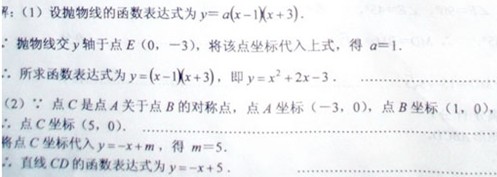 解：(1) 设抛物线的函数表达式为 y＝ a(x－1)(x＋3)．
∵ 抛物线交 y 轴于点 E（0，－3），将该点坐标代入上式，得 a＝1．
∴ 所求函数表达式为 y＝(x－1)(x＋3)，即 y＝x²＋2x－3． ………………
（2）∵ 点 C 是点 A 关于点 B 的对称点，点 A 坐标（－3，0），点 B 坐标（1，0），
∴ 点 C 坐标（5，0）． ………………………………
将点 C 坐标代入 y＝－x＋m，得 m＝5．
∴ 直线 CD 的函数表达式为 y＝－x＋5． ………………………